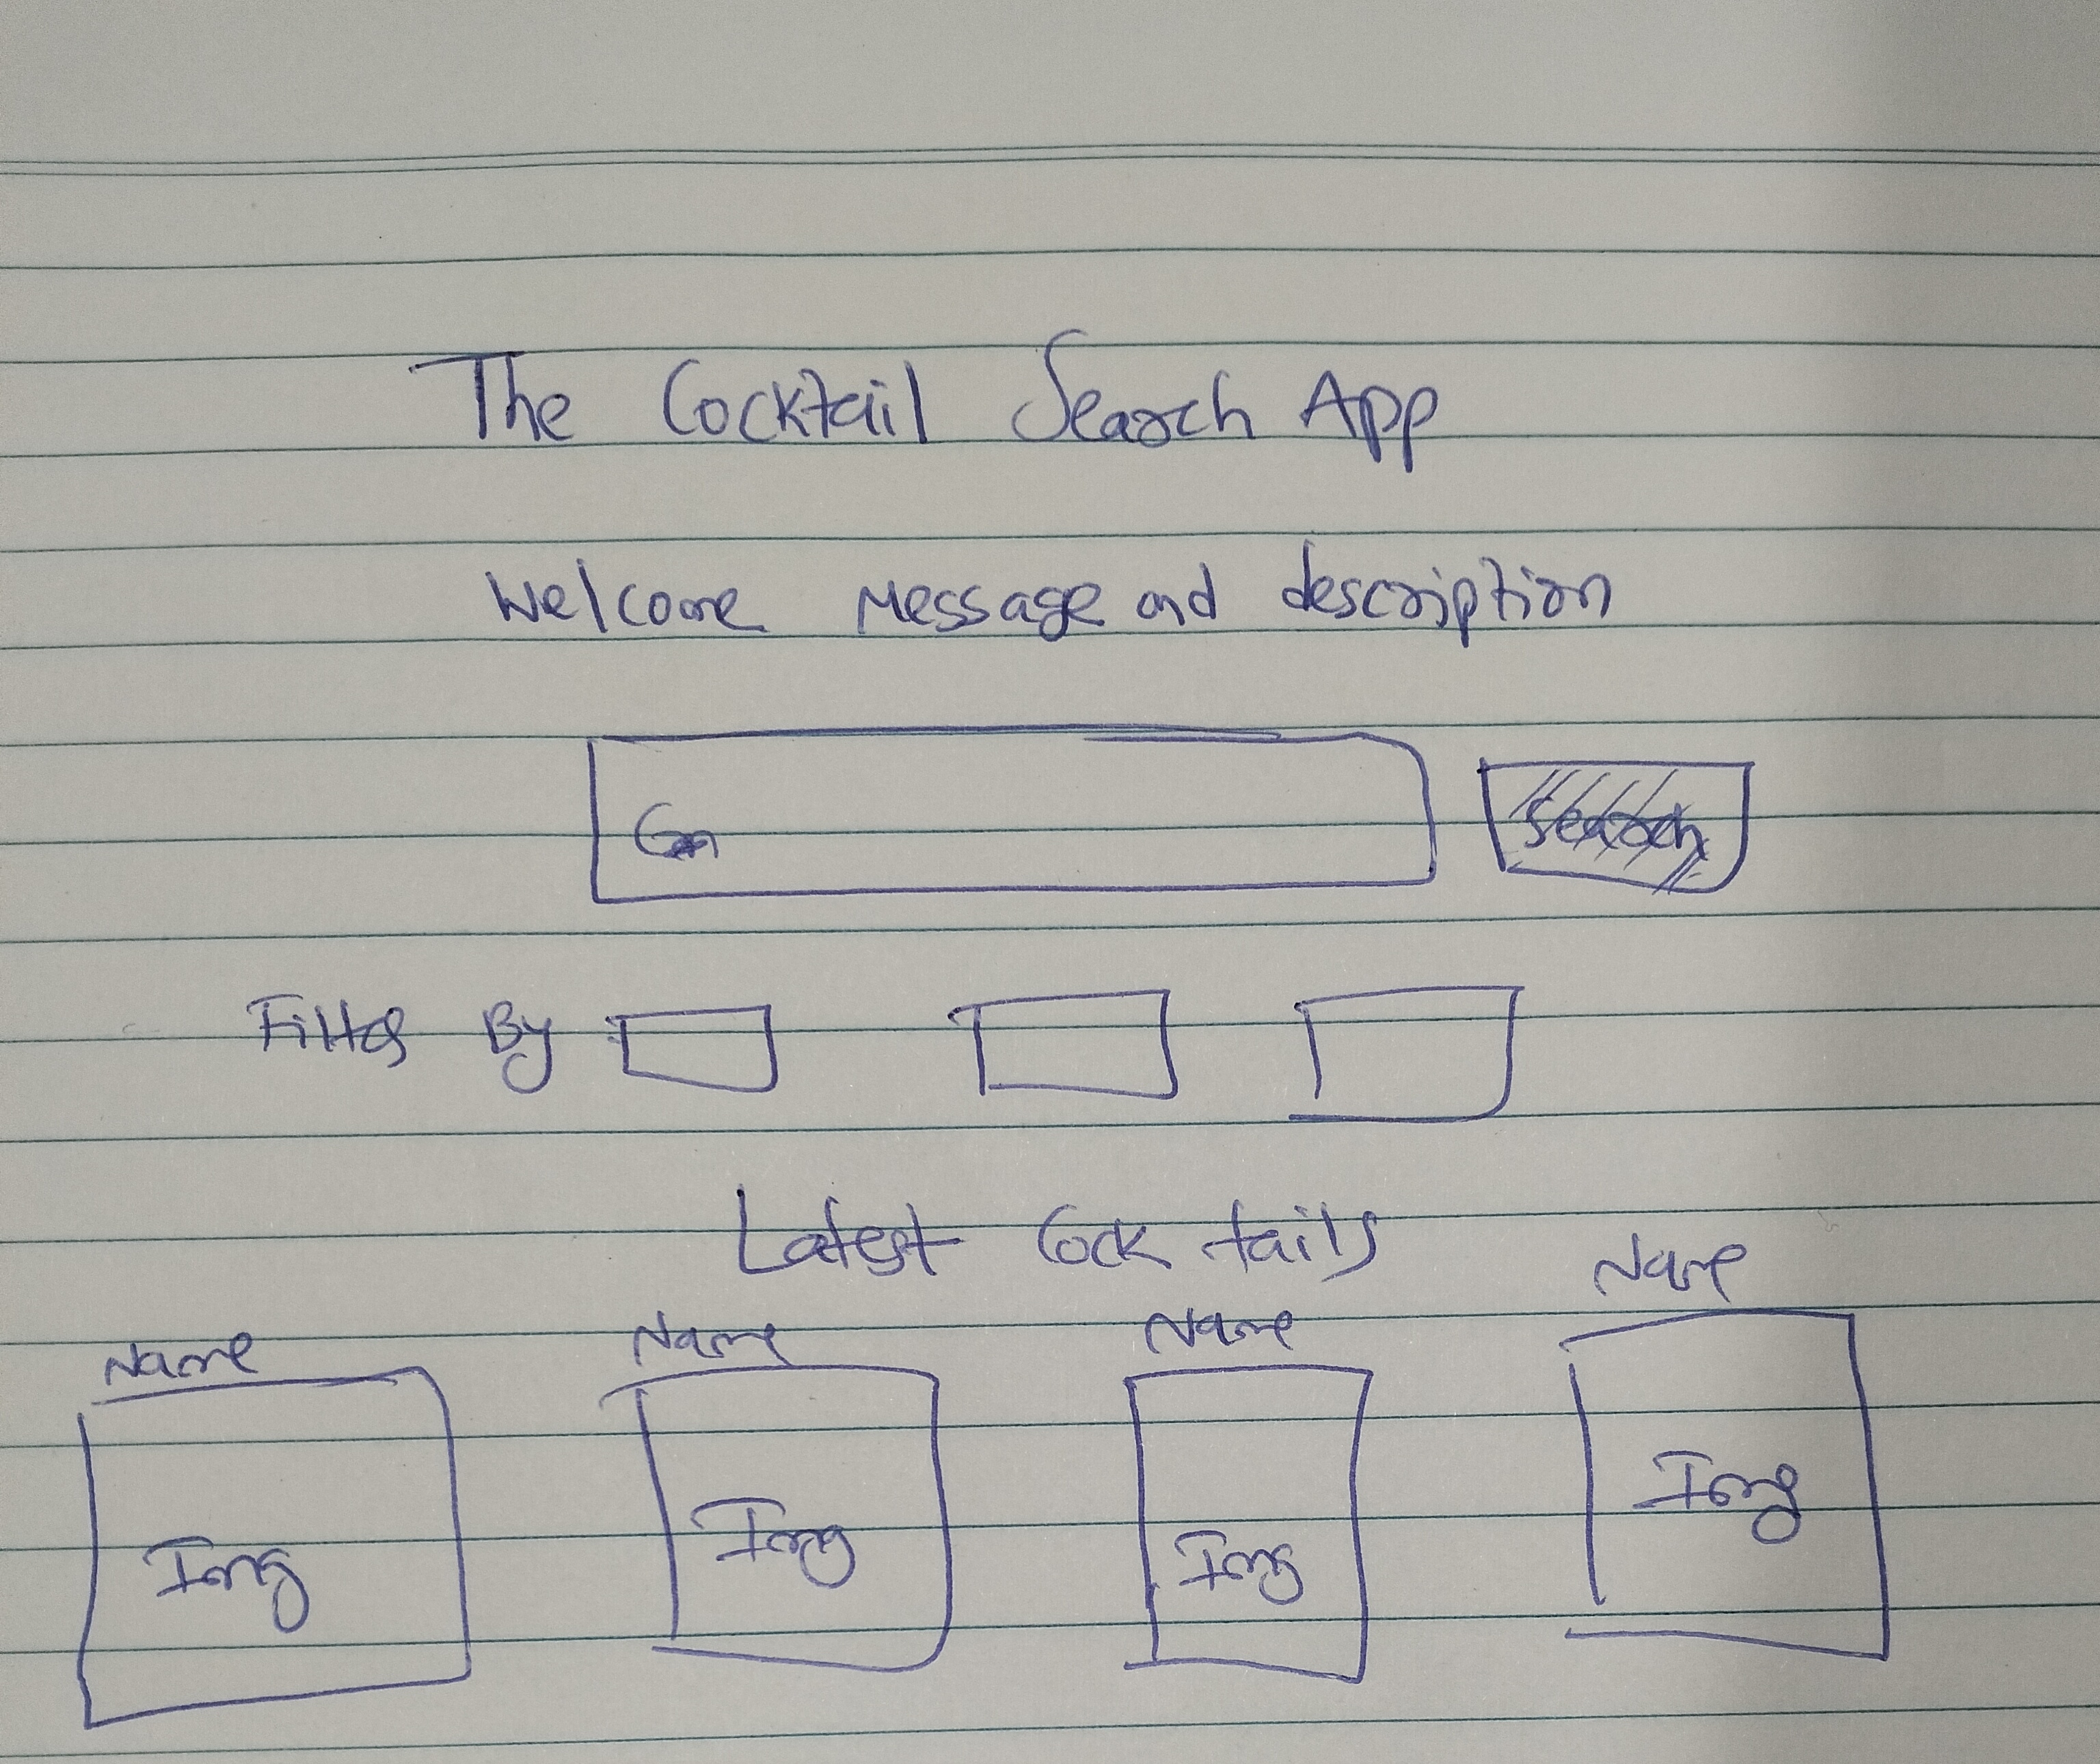 The Cocktail Search App
Welcome Message and description
Search
Filter By
Latest Cocktails
Name Name Name Name
Img Img Img Img